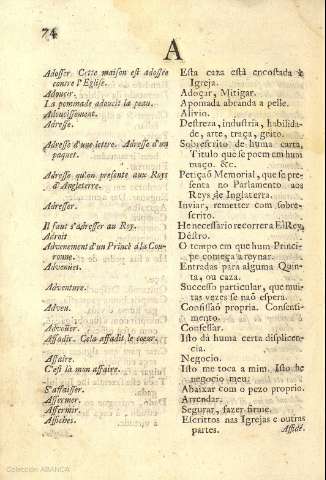 74
A
Adosser. Cette maison est adossée Esta caza está encostada à
contre l'Eglise. Igreja.
Adoucir. Adoçar, Mitigar.
La pommade adoucit la peau. Apomada abranda a pelle.
Adoucissement. Alivio.
Adresse. Destreza, industria, habilida-
de, arte, traça, geito.
Adresse d'une lettre. Adresse d'un Sobrescrito de huma carta,
paquet. Titulo que se poem em hum
maço. &c.
Adresse qu'on presente aux Roys Petiçaõ Memorial, que se pre-
d'Angleterre. senta no Parlamento aos
Reys de Inglaterra.
Adresser. Inviar, remetter com sobre-
scrito.
Il faut s'adresser au Roy. He necessario recorrera ElRey,
Adroit Déstro.
Advenement d'un Princè à la Cou- O tempo em que hum Princi-
ronne. pe começa a reynar.
Advennies. Entradas para alguma Quin-
ta, ou caza.
Adventure. Successo particular, que mui-
tas vezes se naõ espera.
Adven. Confissaõ propria. Consenti-
mento.
Advoüer. Confessar.
Affadir. Cela affadit le coeur. Isto dá huma certa displicen-
cia.
Affaire. Negocio.
C'est là mon affaire. Isto me toca a mim. Isto he
negocio meu.
S'affaisser. Abaixar com o pezo proprio.
Affermer. Arrendar.
Affermir. Segurar, fazer firme.
Affiches. Escrittos nas Igrejas e outras
partes. Affidé.
Colección ABANCA